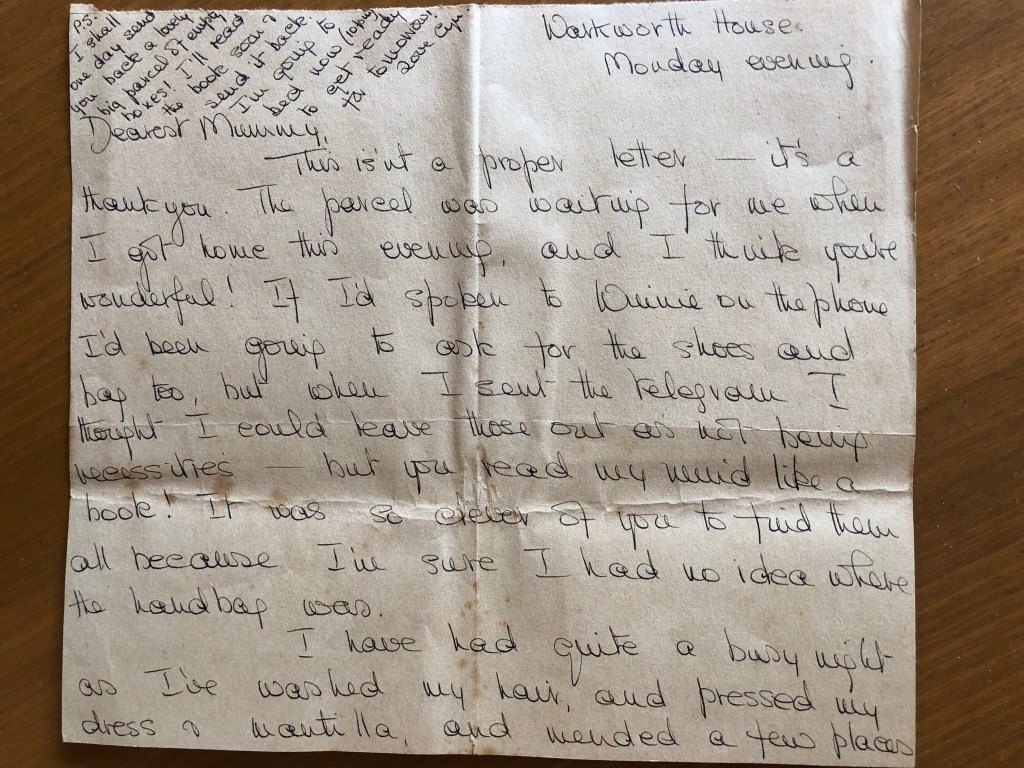 Warkworth House.
Monday evening.
P.S.
I shall
one day send
you back a lovely
big parcel of empty
boxes! I'll read
the book soon &
send it back.
I'm going to
bed now
to get ready
for tomorrow!
Love
Dearest Mummy,
This isn't a proper letter — it's a
thankyou. The parcel was waiting for me when
I got home this evening, and I think you're
wonderful! If I'd spoken to Winnie on the phone
I'd been going to ask for the shoes and
bag too, but when I sent the telegram I
thought I could leave those out as not being
necessities — but you read my mind like a
book! It was so clever of you to find them
all because I'm sure I had no idea where
the handbag was.
I have had quite a busy night
as I've washed my hair, and pressed my
dress & mantilla, and mended a few places